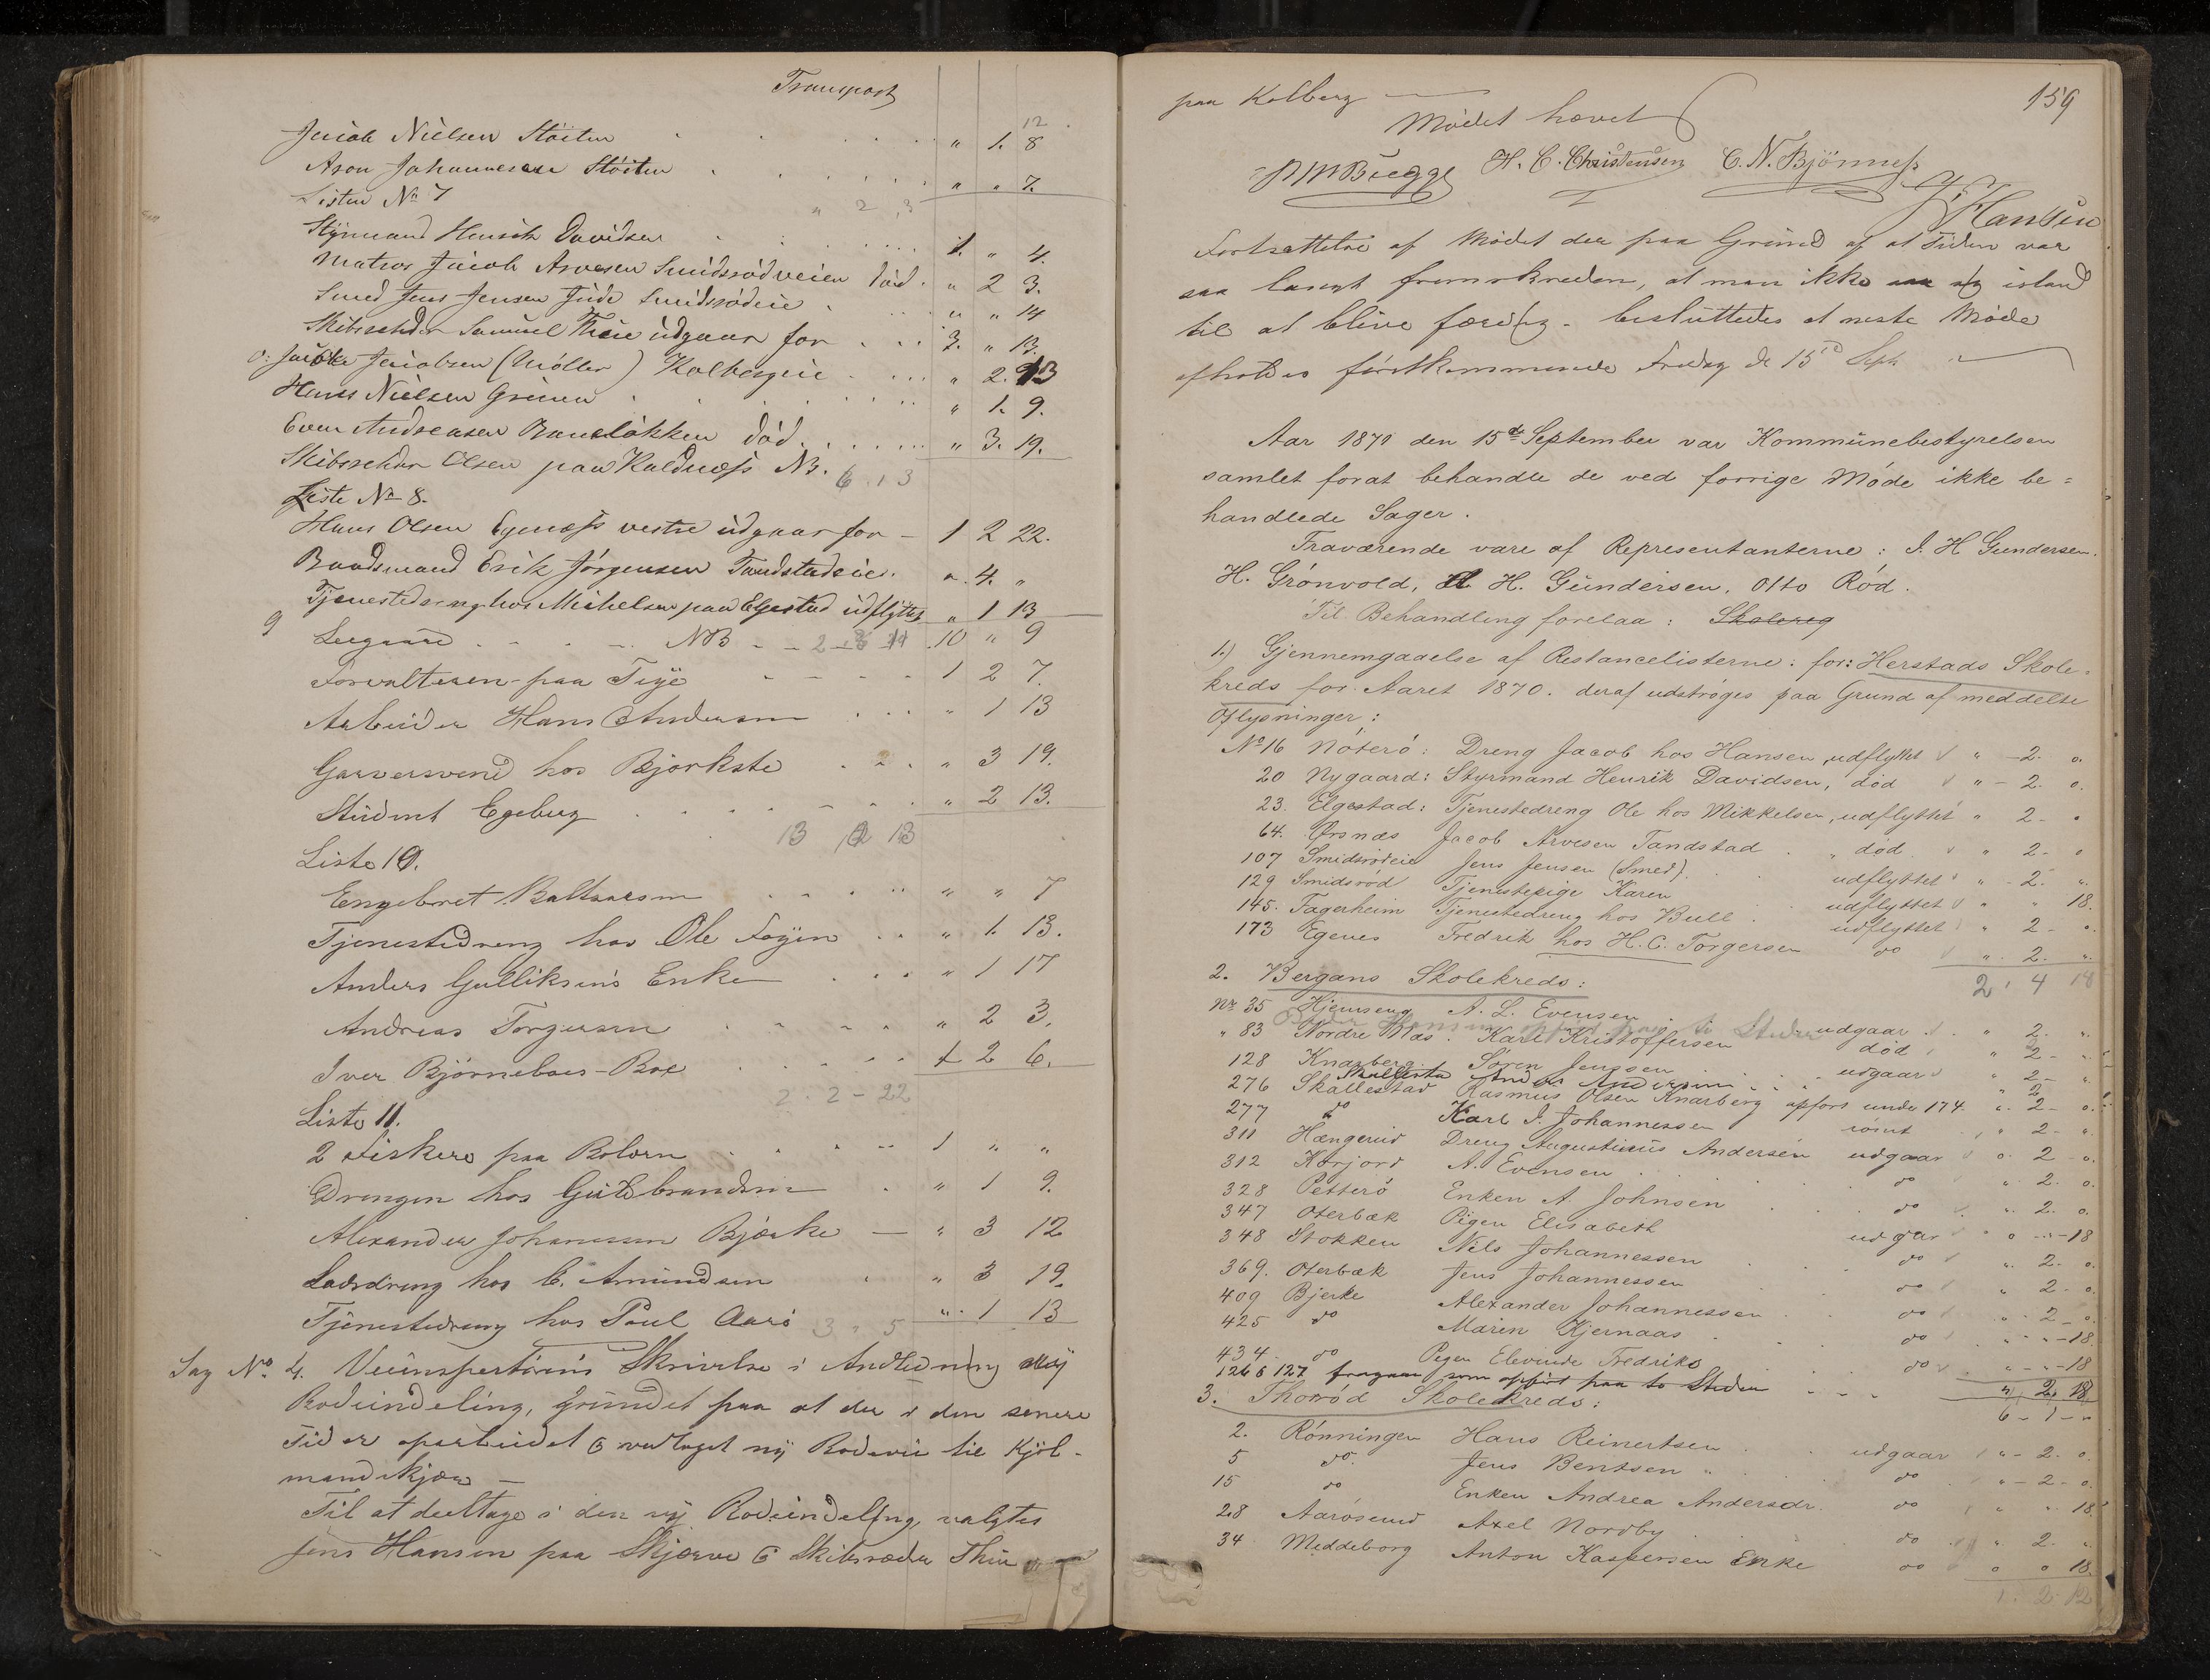 Transport
12
Jacob Nielsen Stöiten " 1. 8
Aron Johannesen Stöiten " " 7.
Listen No 7 " 2 3
Styrmand Henrich Davidsen 1. " 4.
Matros Jacob Arvesen Smidsrödveien död. " 2 3.
Smed Jens Jensen Jude Smidsrödeie " " 14
Skibsreder Samuel Theie udgaar for 3. " 13.
Jacob Jacobsen (Möller) Kolbergeie " 2. 13
Hans Nielsen Grimen " 1. 9.
Even Andreasen Bruslökken död. " 3. 19.
Skibsreder Olsen paa Kaldnæss NB. 6 . 1 3
Liste No 8.
Hans Olsen Egenæss vestre udgaar for – 1 2 22.
Baadsmand Erik Jörgensen Tandstadeie. " 4. "
Tjenestedreng hos Mikelsen paa Elgestad udflyttet " 1 13
9 Leegaard NB 10 " 9
Forvalteren paa Teye 1 2 7.
Arbeider Hans Andersen " 1 13
Garversvend hos Bjorkste " 3 19.
Student Egeberg " 2 13.
13 12 13
Liste 10.
Engebret Baltsarsen " " 7
Tjenestedreng hos Ole Foyen " 1. 13.
Anders Gulliksens Enke " 1 17
Andreas Torgersen " 2 3.
Iver Björneboes-Boe 2 6.
2. 2 – 22
Liste 11.
2 Fiskere paa Bolærn 1 " "
Drengen hos Guldbrandsen " 1 9.
Alexander Johannesen Bjærke — " 3 12
Lodsdreng hos C. Amundsen " 3 19.
Tjenestedreng hos Poul Aarö 3 " 5 " 1 13
Sag No. 4. Veiinspektörens Skrivelse i Anledning af ny
Rodeindeling, grundet paa at der i den senere
Tid er oparbeidet & vedtaget ny Rodevei til Kjöl-
mandskjær —
Til at deeltage i den ny Rodeindeling, valgtes
Jens Hansen paa Skjærve & Skibsreder Theie
paa Kolberg — 159
Mödet hævet
H. C. Christensen C. N. Björness
Hansen
Fortsættelse af Mödet der paa Grund af at Tiden var
saa langt fremskreden, at man ikke saa sig istand
til at blive færdig – besluttedes at neste Möde
afholdes förstkommende Fredag d. 15d Sept.
Aar 1871 den 15de September var Kommunebestyrelsen
samlet forat behandle de ved forrige Möde ikke be=
handlede Sager.
Fraværende vare af Repræsentanterne: I. H Gundersen.
H. Grönvold, H. Gundersen. Otto Röd.
Til Behandling forelaa: Skolereg
1.) Gjennemgaaelse af Restancelisterne: for: Herstads Skole-
kreds for Aaret 1870. deraf udströges paa Grund af meddelte
Oplysninger:
No 16 Nöterö: Dreng Jacob hos Hansen, udflyttet " – 2. o.
20 Nygaard: Styrmand Henrik Davidsen, död " – 2. o.
23. Elgestad: Tjenestedreng Ole hos Mikkelsen, udflyttet " 2 – o
64. Örsnæs Jacob Arvesen Tandstad död " 2 – o
107 Smidsrödeie Jens Jensen (Smed). udflyttet " – 2. ".
129 Smidsröd Tjenestepige Karen udflyttet " " 18.
145. Fagerheim Tjenestedreng hos Bull udflyttet " 2 – o.
173 Egenes Fredrik hos H. C. Torgersen do " 2. ".
2 . 4 18
2. Bergans Skolekreds:
Nr 35 Hjemseng A. L. Evensen udgaar " 2. ".
" 83 Nordre Næs. Karl Kristoffersen död " 2 – ".
128 Knarberg Sören Jenssen udgaar " 2 – ".
Skallestad Anders Andersen " 2
276 Skallestad Rasmus Olsen Knarberg opfört under 174. " 2 – o.
277 do Karl I. Johannessen römt " 2 – ".
311 Hængerud Dreng Augustinus Andersen udgaar o. 2 – o.
312 Kærjord A. Evensen do " 2. o.
328 Petterö Enken A. Johnsen do " 2. o.
347 Oterbæk Pigen Elisabeth udgår o – " – 18
348 Stokken Nils Johannessen do " 2 – o.
369. Oterbæk Jens Johannessen do " 2 – o.
409 Bjerke Alexander Johannessen do " 2 – o.
425 do Maren Kjernaas do " – " – 18.
434. do Pegen Elevinde Fredriks do " – " – 18
126 & 127 fragaar som opfört paa to Steder " 2. 18
6 – 1 – "
3. Thoröd Skolekreds:
2. Rönningen Hans Reinertsen udgaar " – 2. o.
5 do. Jens Bentsen " do " – 2 – o.
15 do Enken Andrea Andersdr. do " " 18
28 Aarösund Axel Nordby do " 2. "
34 Meddeborg Anton Kaspersen Enke do o o 18.
1. 2. 12